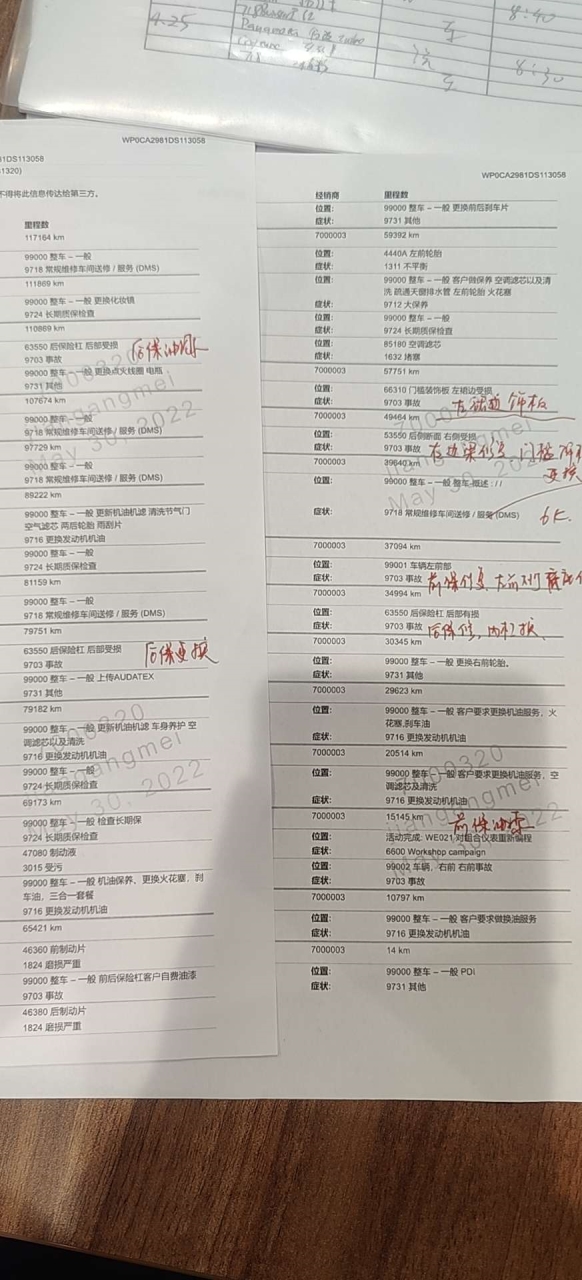 4.25
Panamera
8:40
8:30
WP0CA2981DS113058
1DS113058
1320)
不得将此信息传达给第三方。
里程数
117164 km
99000 整车 – 一般
9718 常规维修车间送修 / 服务 (DMS)
111869 km
99000 整车 – 一般 更换化妆镜
9724 长期质保检查
110869 km
63550 后保险杠 后部受损
9703 事故
99000 整车 – 一般 更换点火线圈 电瓶
9731 其他
107674 km
99000 整车 – 一般
9718 常规维修车间送修 / 服务 (DMS)
97729 km
99000 整车 – 一般
9718 常规维修车间送修 / 服务 (DMS)
89222 km
99000 整车 – 一般 更新机油机滤 清洗节气门
空气滤芯 两后轮胎 雨刮片
9716 更换发动机机油
99000 整车 – 一般
9724 长期质保检查
81159 km
99000 整车 – 一般
9718 常规维修车间送修 / 服务 (DMS)
79751 km
63550 后保险杠 后部受损
后保更换
9703 事故
99000 整车 – 一般 上传AUDATEX
9731 其他
79182 km
99000 整车 – 一般 更新机油机滤 车身养护 空
调滤芯以及清洗
9716 更换发动机机油
99000 整车 – 一般
9724 长期质保检查
69173 km
99000 整车 – 一般 检查长期保
9724 长期质保检查
47080 制动液
3015 受污
99000 整车 – 一般 机油保养、更换火花塞，刹
车油，三合一套餐
9716 更换发动机机油
65421 km
46360 前制动片
1824 磨损严重
99000 整车 – 一般 前后保险杠客户自费油漆
9703 事故
46380 后制动片
1824 磨损严重
7000320
jiangangmei
May 30, 2022
WP0CA2981DS113058
经销商 里程数
位置: 99000 整车 – 一般 更换前后刹车片
症状: 9731 其他
7000003 59392 km
位置: 4440A 左前轮胎
症状: 1311 不平衡
位置: 99000 整车 – 一般 客户做保养 空调滤芯以及清
洗 疏通天窗排水管 左前轮胎 火花塞
症状: 9712 大保养
位置: 99000 整车 – 一般
症状: 9724 长期质保检查
位置: 85180 空调滤芯
症状: 1632 堵塞
7000003 57751 km
位置: 66310 门槛装饰板 左裙边受损
症状: 9703 事故 左裙边饰板
7000003 49464 km
位置: 53550 后侧断面 右侧受损
症状: 9703 事故
7000003 39640 km
更换
位置: 99000 整车 – 一般 整车-概述 : / /
症状: 9718 常规维修车间送修 / 服务 (DMS)
7000003 37094 km
位置: 99001 车辆左前部
症状: 9703 事故
7000003 34994 km
位置: 63550 后保险杠 后部有损
症状: 9703 事故
7000003 30345 km
位置: 99000 整车 – 一般 更换右前轮胎。
症状: 9731 其他
7000003 29623 km
位置: 99000 整车 – 一般 客户要求更换机油服务，火
花塞,刹车油
症状: 9716 更换发动机机油
7000003 20514 km
位置: 99000 整车 – 一般 客户要求更换机油服务，空
调滤芯及清洗
症状: 9716 更换发动机机油
7000003 15145 km
前保油漆
位置: 活动完成: WE021 对组合仪表重新编程
症状: 6600 Workshop campaign
位置: 99002 车辆，右前 右前事故
症状: 9703 事故
7000003 10797 km
位置: 99000 整车 – 一般 客户要求做换油服务
症状: 9716 更换发动机机油
7000003 14 km
位置: 99000 整车 – 一般 PDI
症状: 9731 其他